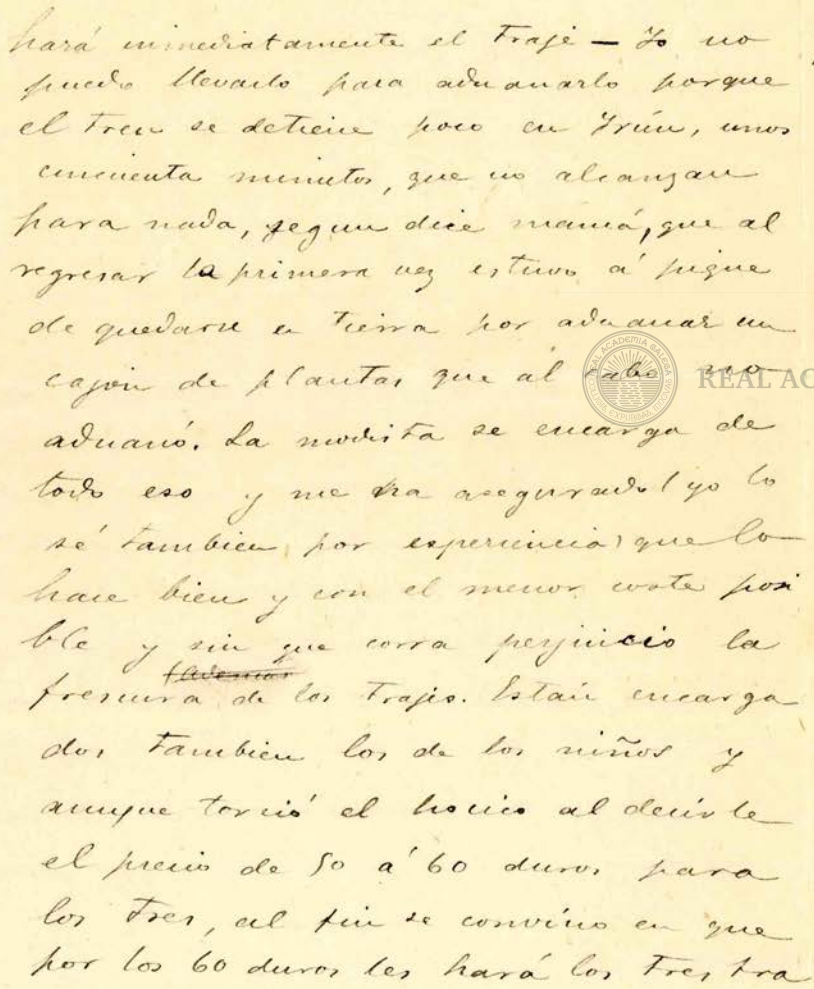 hará inmediatamente el traje — Yo no
puedo llevarlo para aduanarlo porque
el tren se detiene poco en Irún, unos
cincuenta minutos, que no alcanzan
para nada, segun dice mamá, que al
regresar la primera vez estuvo á pique
de quedarse en tierra por aduanar un
cajón de plantas que al cabo no
aduanó. La modista se encarga de
todo eso y me ha asegurado (yo lo
sé tambien por esperiencia) que lo
hace bien y con el menor coste posi
ble y sin que corra perjuicio la
frescura de los trajes. Están encarga
dos tambien los de los niños y
aunque torció el hocico al decirle
el precio de 50 á 60 duros para
los tres, al fin se convino en que
por los 60 duros les hará los tres tra
REAL ACADEMIA GALEGA
REAL AC